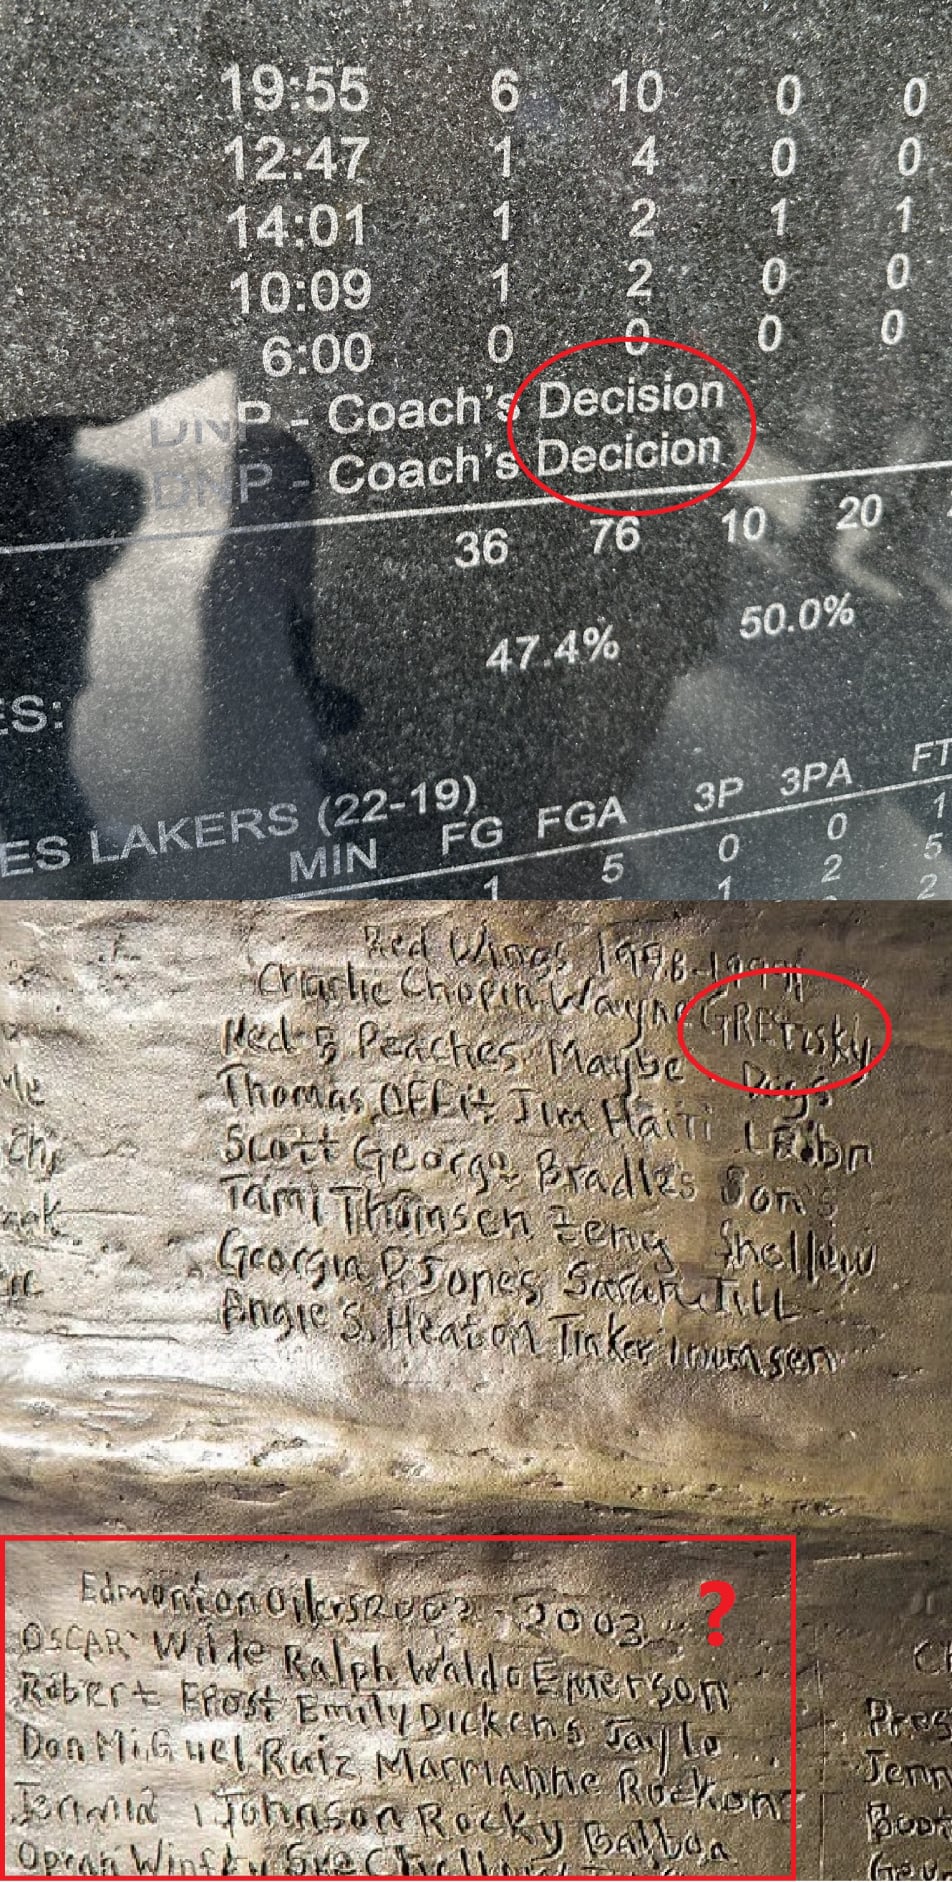 19:55 6 10 0 0
12:47 1 4 0 0
14:01 1 2 1 1
10:09 1 2 0 0
6:00 0 0 0 0
DNP - Coach's Decision
DNP - Coach's Decicion
36 76 10 20
47.4% 50.0%
ES:
ES LAKERS (22-19)
MIN FG FGA 3P 3PA FT
1 5 0 0 1
1 2 5
2
Red Wings
Charlie Chopin Wayne GREtzsky
Red & Peaches Maybe Dogs
Thomas OFFit Jim Haiti
Scott George Bradles Son's
Tami Thomsen Zeng Shellow
Georgia P Jones Sarah Jill
Angie S. Heaton Tinker
?
Edmonton Oilers 2002 - 2003
OSCAR Wilde Ralph Waldo Emerson
Robert Frost Emily Dickens Jaylo
Don MiGuel Ruiz Marrianne Rockon
Johnson Rocky Balboa
Oprah
Pres
Jenn